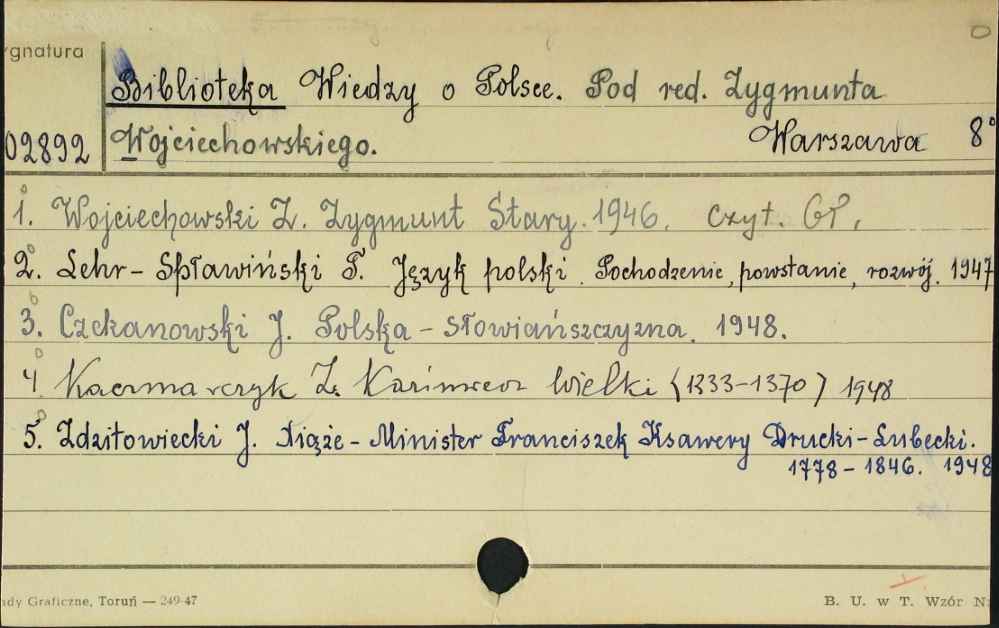 ygnatura
Biblioteka Wiedzy o Polsce. Pod red. Zygmunta
02892 Wojciechowskiego. Warszawa 8°
1. Wojciechowski Z. Zygmunt Stary. 1946. Czyt. GP.
2. Lehr-Spławiński T. Język polski. Pochodzenie, powstanie, rozwój. 1947
3. Czekanowski J. Polska - Słowiańszczyzna. 1948.
4. Kaczmarczyk Z. Kazimierz Wielki (1333-1370) 1948
5. Zdzitowiecki J. Xiąże-Minister Franciszek Ksawery Drucki-Lubecki.
1778-1846. 1948
ady Graficzne, Toruń — 249-47 B. U. w T. Wzór N